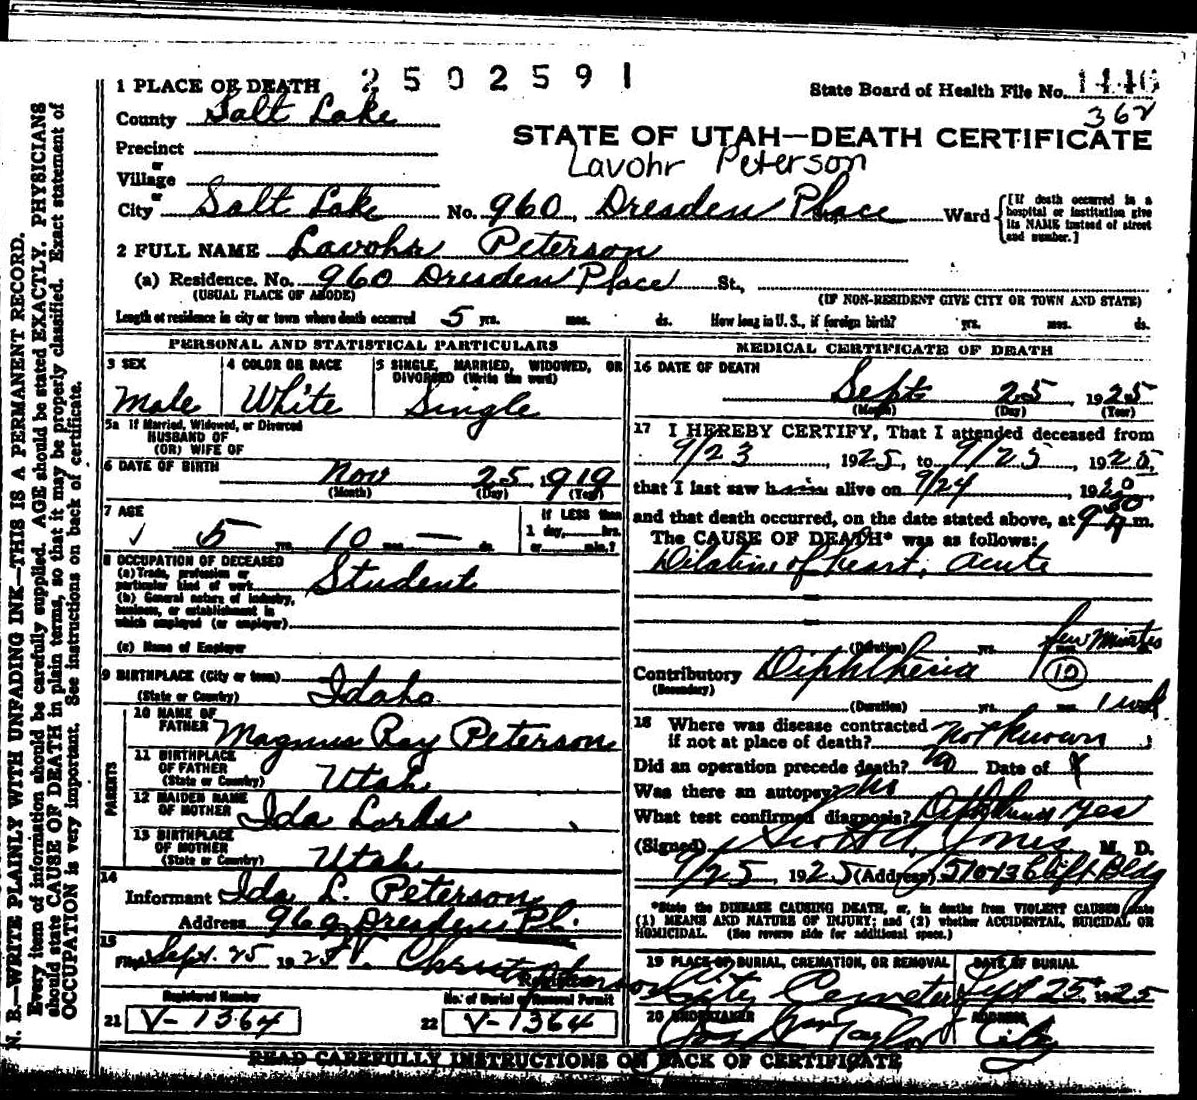 N. B.—WRITE PLAINLY WITH UNFADING INK—THIS IS A PERMANENT RECORD.
Every item of information should be carefully supplied. AGE should be stated EXACTLY. PHYSICIANS
should state CAUSE OF DEATH in plain terms, so that it may be properly classified. Exact statement of
OCCUPATION is very important. See instructions on back of certificate.
1 PLACE OF DEATH 2502591
State Board of Health File No.
362
County Salt Lake
STATE OF UTAH—DEATH CERTIFICATE
Precinct
Lavohr Peterson
or
Village
or
City Salt Lake No. 960, Dresden Place St., Ward
[If death occurred in a
hospital or institution give
its NAME instead of street
and number.]
2 FULL NAME Lavohr Peterson
(a) Residence. No. 960 Dresden Place St.,
(USUAL PLACE OF ABODE) (IF NON-RESIDENT GIVE CITY OR TOWN AND STATE)
Length of residence in city or town where death occurred 5 yrs. mos. ds. How long in U. S., if foreign birth? yrs. mos. ds.
PERSONAL AND STATISTICAL PARTICULARS
3 SEX
Male
4 COLOR OR RACE
White
5 SINGLE, MARRIED, WIDOWED, OR
DIVORCED (Write the word)
Single
5a If Married, Widowed, or Divorced
HUSBAND OF
(OR) WIFE OF
6 DATE OF BIRTH Nov 25 1919
(Month) (Day) (Year)
7 AGE
5 yrs. 10 mos. — ds.
If LESS than
1 day, hrs.
or min.?
8 OCCUPATION OF DECEASED
(a) Trade, profession or
particular kind of work Student
(b) General nature of industry,
business, or establishment in
which employed (or employer)
(c) Name of Employer
9 BIRTHPLACE (City or town)
(State or Country) Idaho
PARENTS
10 NAME OF
FATHER Magnus Ray Peterson
11 BIRTHPLACE
OF FATHER
(State or Country) Utah
12 MAIDEN NAME
OF MOTHER Ida
13 BIRTHPLACE
OF MOTHER
(State or Country) Utah
14
Informant Ida L. Peterson
Address 960 Dresden Pl.
15
Filed Sept. 25 1925
Registered Number
No. of Burial or Removal Permit
21 V-1364 22 V-1364
MEDICAL CERTIFICATE OF DEATH
16 DATE OF DEATH
Sept 25 1925
(Month) (Day) (Year)
17 I HEREBY CERTIFY, That I attended deceased from
9/23, 1925, to 9/25, 1925,
that I last saw him alive on 9/24, 19
and that death occurred, on the date stated above, at 9 30 A m.
The CAUSE OF DEATH* was as follows:
Dilatine of heart, acute
few minutes
(Duration) yrs. mos.
Contributory Diphtheria 10
(Secondary)
(Duration) yrs. mos. 1 wk
18 Where was disease contracted
if not at place of death? not known
Did an operation precede death? no Date of
Was there an autopsy? no
What test confirmed diagnosis? yes
(Signed) Scott A. Jones M. D.
9/25, 1925 (Address) 510-13 Clift Bldg
*State the DISEASE CAUSING DEATH, or, in deaths from VIOLENT CAUSES state
(1) MEANS AND NATURE OF INJURY; and (2) whether ACCIDENTAL, SUICIDAL OR
HOMICIDAL. (See reverse side for additional space.)
19 PLACE OF BURIAL, CREMATION, OR REMOVAL
City Cemetery
DATE OF BURIAL
Sept 25 1925
20 UNDERTAKER
Jos Wm Taylor
ADDRESS
City
READ CAREFULLY INSTRUCTIONS ON BACK OF CERTIFICATE